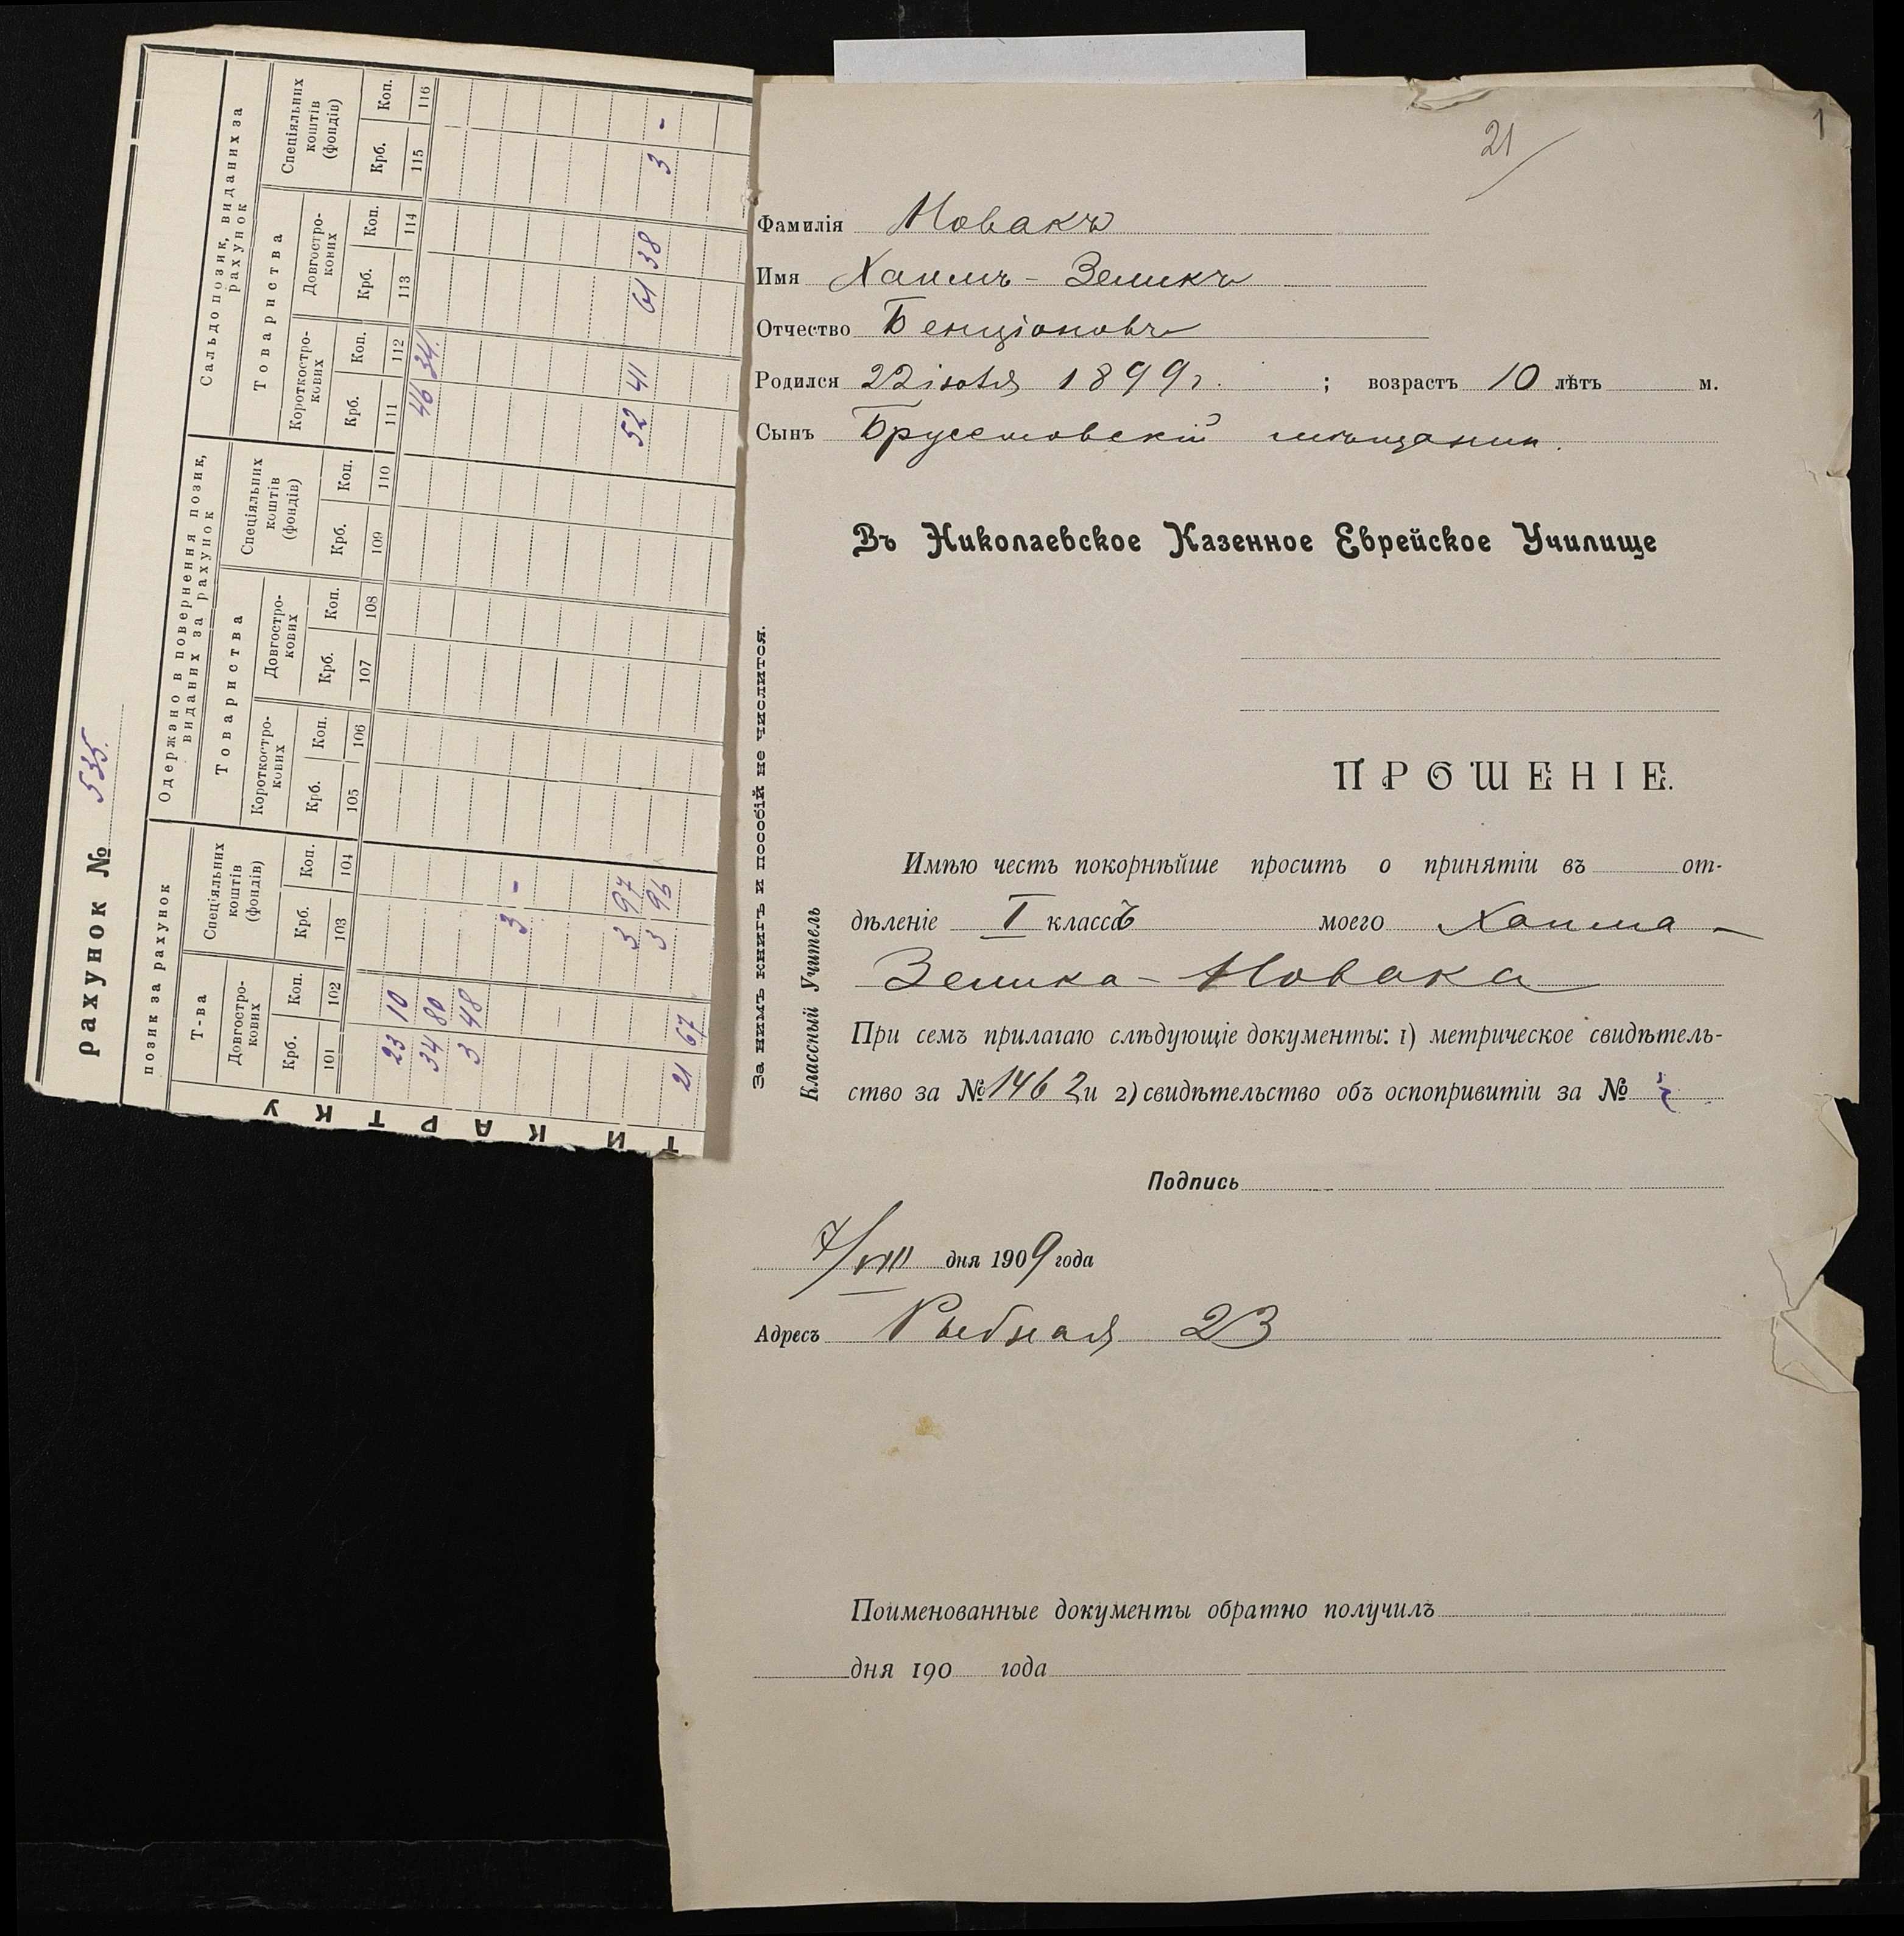 21
1
Фамилія Новакъ
Имя Хаимъ - Зеликъ
Отчество Бенціоновъ
Родился 22 іюля 1899 г. ; возрастъ 10 лѣтъ м.
Сынъ мѣщанин.
Въ Николаевское Казенное Еврейское Училище
ПРОШЕНІЕ.
Имѣю честь покорнѣйше просить о принятіи въ от-
дѣленіе I классъ моего Хаима -
Зелика - Новака
При семъ прилагаю слѣдующіе документы: 1) метрическое свидѣтель-
ство за № 1462 и 2) свидѣтельство объ оспопривитіи за №
Подпись
7/VIII дня 1909 года
Адресъ Рыбная 23
Поименованные документы обратно получилъ
дня 190 года
За нимъ книгъ и пособій не числится.
Классный Учитель
рахунок № 535.
позик за рахунок
Одержано в повернення позик,
виданих за рахунок
Сальдо позик, виданих за
рахунок
Т-ва
Спеціяльних коштів (фондів)
Товариства
Спеціяльних коштів (фондів)
Товариства
Спеціяльних коштів (фондів)
Довгостро-кових
Короткостро-кових
Довгостро-кових
Короткостро-кових
Довгостро-кових
Крб. Коп. Крб. Коп. Крб. Коп. Крб. Коп. Крб. Коп. Крб. Коп. Крб. Коп. Крб. Коп.
101 102 103 104 105 106 107 108 109 110 111 112 113 114 115 116
46 34.
23 10
34 80
3 48
3 -
3 97 52 41 61 38 3 -
3 96
21 67
ТИ КАРТКУ